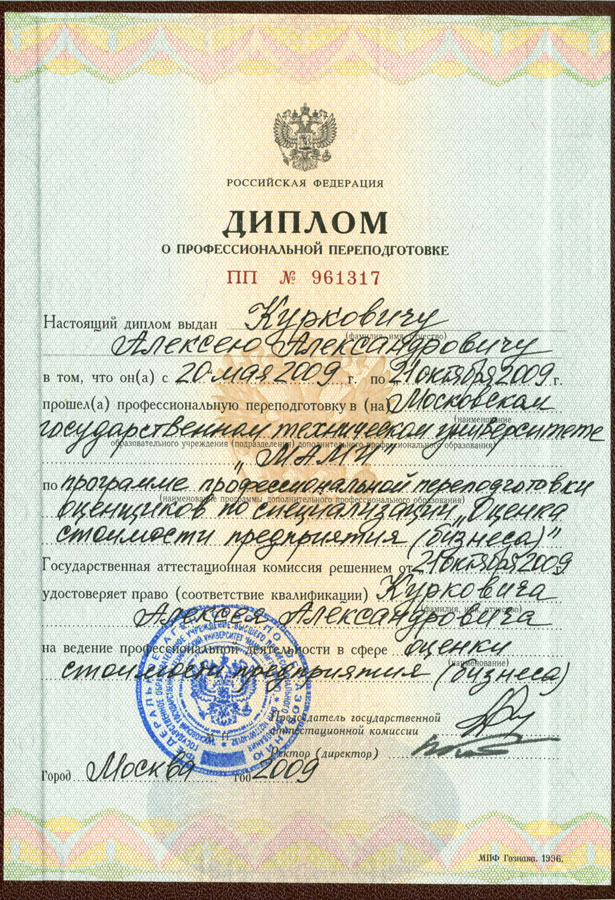 РОССИЙСКАЯ ФЕДЕРАЦИЯ
ДИПЛОМ
О ПРОФЕССИОНАЛЬНОЙ ПЕРЕПОДГОТОВКЕ
ПП № 961317
Настоящий диплом выдан Курковичу
(фамилия, имя, отчество)
Алексею Александровичу
в том, что он(а) с 20 мая 2009 г. по 21 октября 2009 г.
прошел(а) профессиональную переподготовку в (на) Московском
(наименование
государственном техническом университете
образовательного учреждения (подразделения) дополнительного профессионального образования)
"МАМИ"
по программе профессиональной переподготовки
(наименование программы дополнительного профессионального образования)
оценщиков по специализации „Оценка
стоимости предприятия (бизнеса)"
Государственная аттестационная комиссия решением от 21 октября 2009
удостоверяет право (соответствие квалификации) Курковича
(фамилия, имя, отчество)
Алексея Александровича
на ведение профессиональной деятельности в сфере оценки
(наименование)
стоимости предприятия (бизнеса)
Председатель государственной
аттестационной комиссии
Ректор (директор)
Город Москва год 2009
МПФ Гознака. 1996.